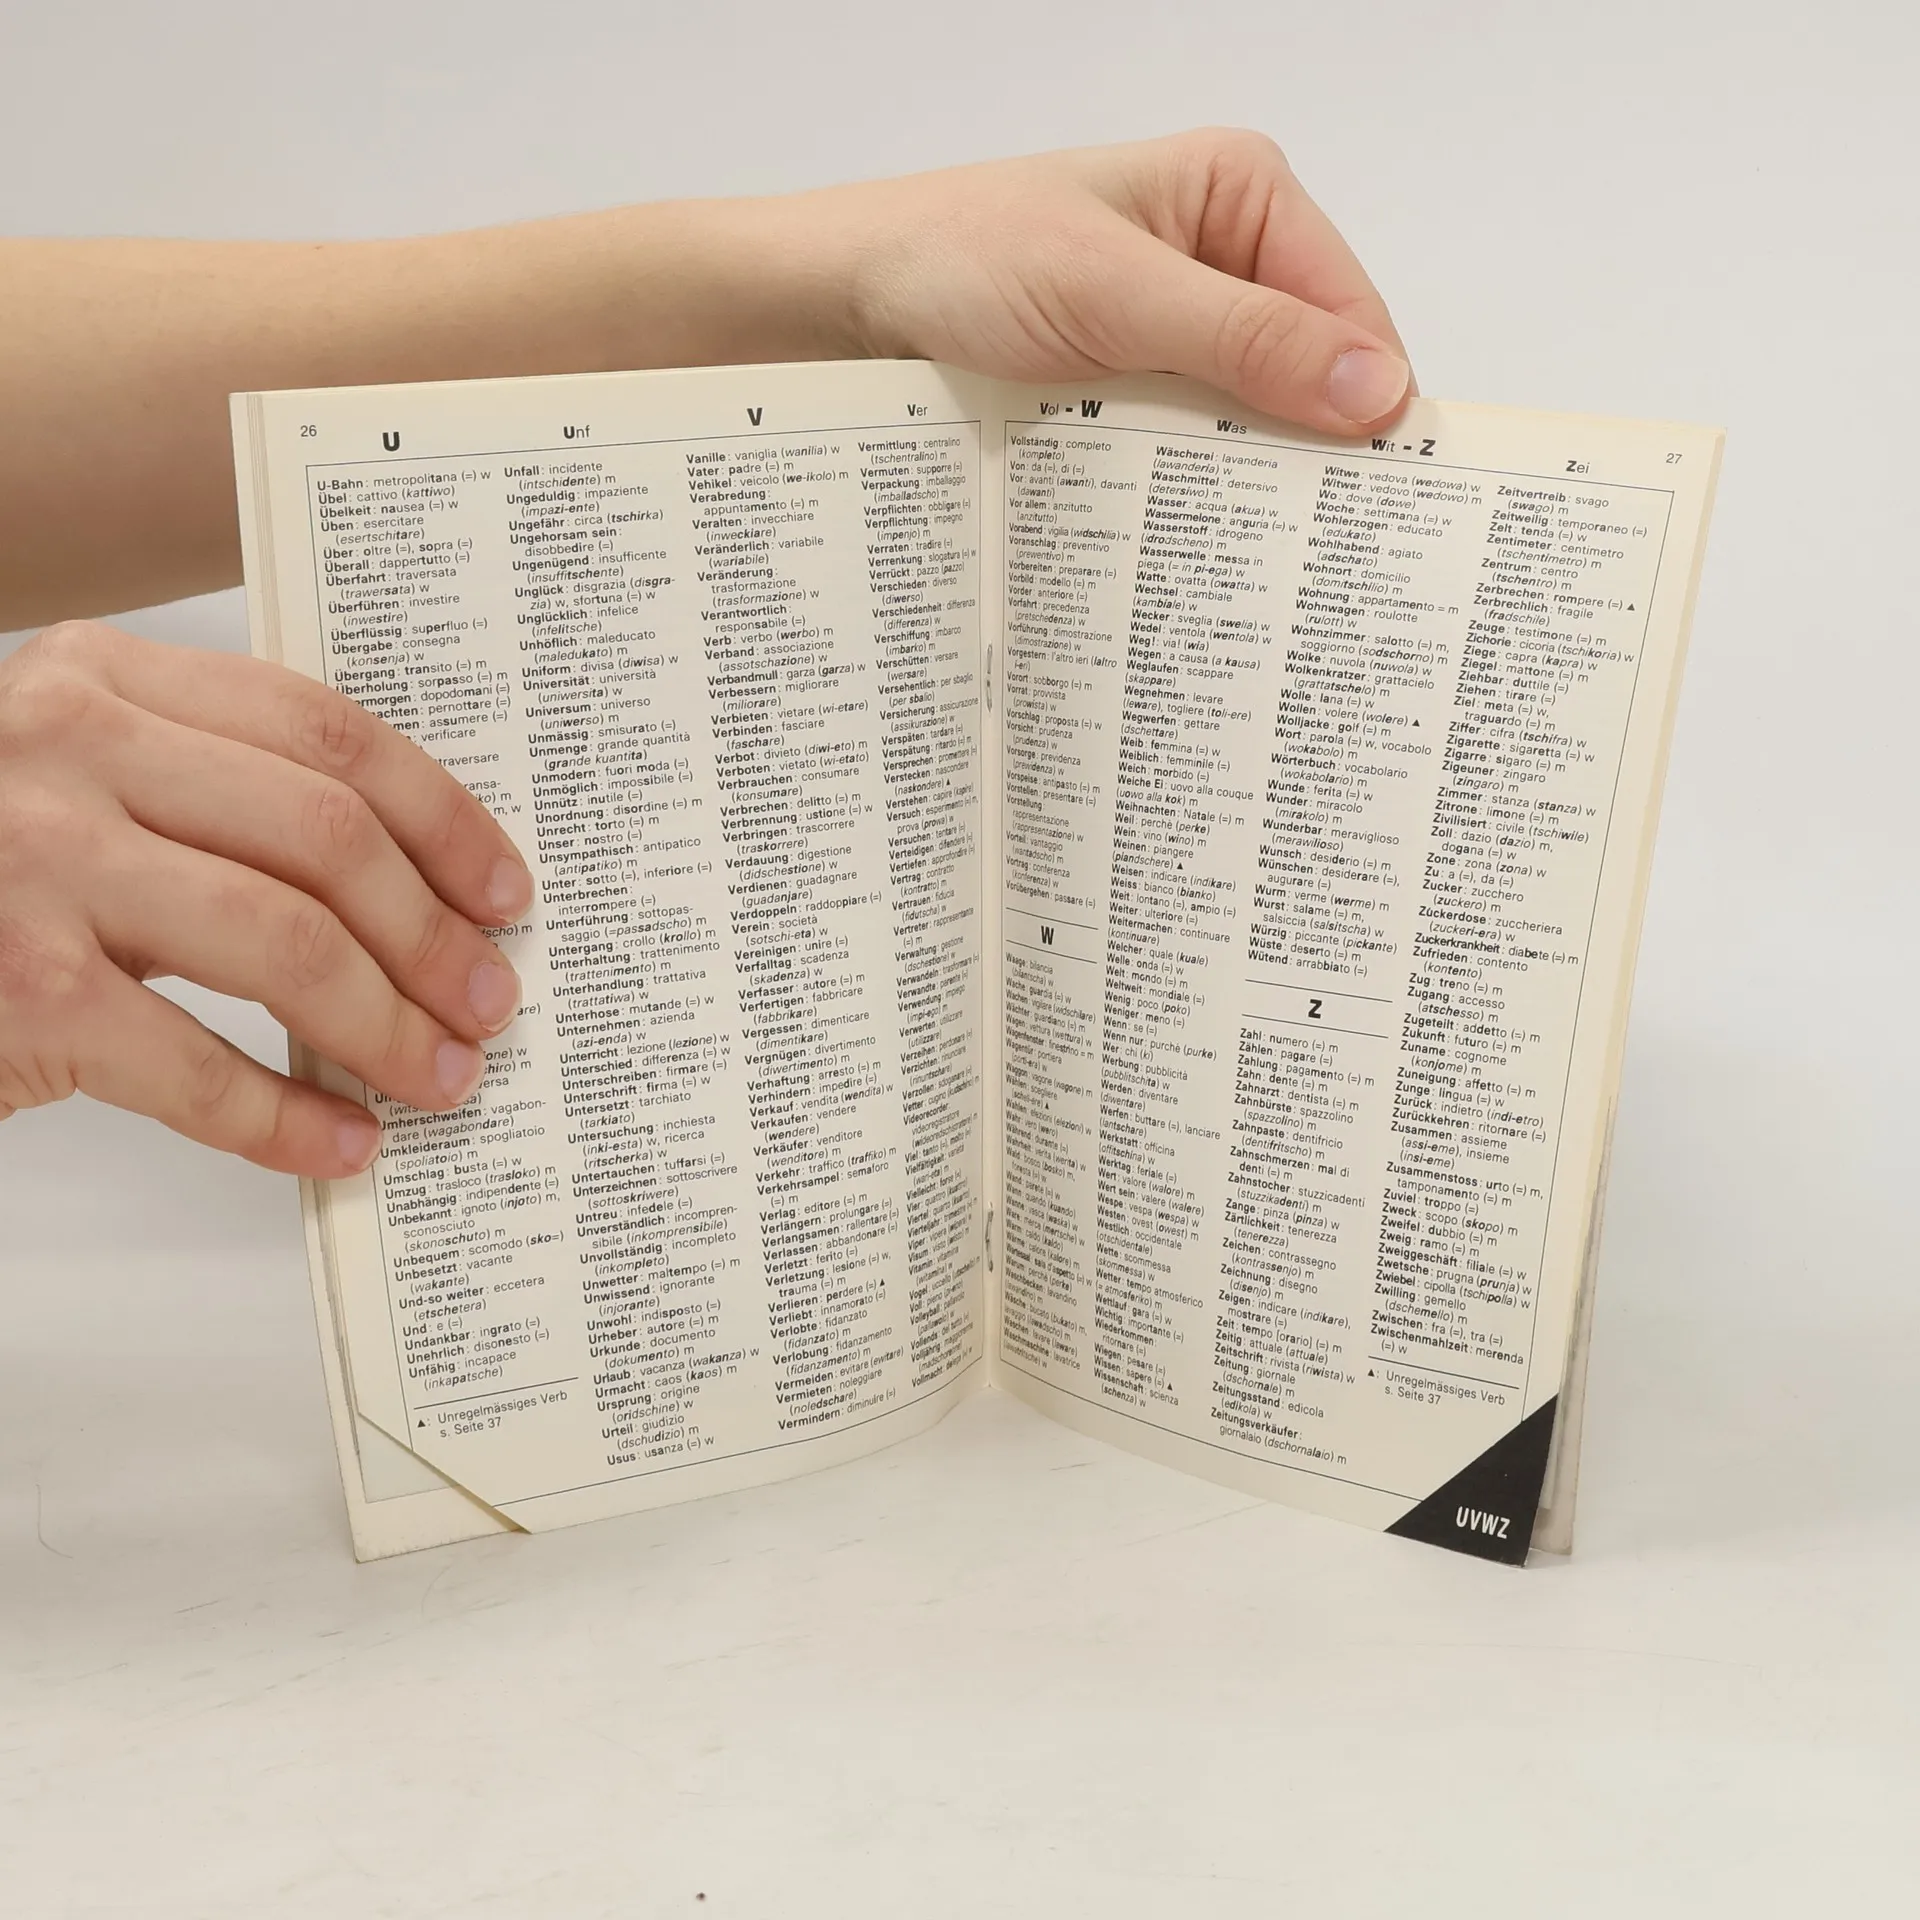 26
U
Unf
V
Ver
U-Bahn: metropolitana (=) w
Übel: cattivo (kattiwo)
Übelkeit: nausea (=) w
Üben: esercitare
(esertschitare)
Über: oltre (=), sopra (=)
Überall: dappertutto (=)
Überfahrt: traversata
(trawersata) w
Überführen: investire
(inwestire)
Überflüssig: superfluo (=)
Übergabe: consegna
(konsenja) w
Übergang: transito (=) m
Überholung: sorpasso (=) m
ermorgen: dopodomani (=)
achten: pernottare (=)
men: assumere (=)
verificare
traversare
ransa-
m, w
are)
Umherschweifen: vagabon-
dare (wagabondare)
Umkleideraum: spogliatoio
(spoliatoio) m
Umschlag: busta (=) w
Umzug: trasloco (trasloko) m
Unabhängig: indipendente (=)
Unbekannt: ignoto (injoto) m,
sconosciuto
(skonoschuto) m
Unbequem: scomodo (sko=)
Unbesetzt: vacante
(wakante)
Und-so weiter: eccetera
(etschetera)
Und: e (=)
Undankbar: ingrato (=)
Unehrlich: disonesto (=)
Unfähig: incapace
(inkapatsche)
▲: Unregelmässiges Verb
s. Seite 37
Unfall: incidente
(intschidente) m
Ungeduldig: impaziente
(impazi-ente)
Ungefähr: circa (tschirka)
Ungehorsam sein:
disobbedire (=)
Ungenügend: insufficente
(insuffitschente)
Unglück: disgrazia (disgra-
zia) w, sfortuna (=) w
Unglücklich: infelice
(infelitsche)
Unhöflich: maleducato
(maledukato) m
Uniform: divisa (diwisa) w
Universität: università
(uniwersita) w
Universum: universo
(uniwerso) m
Unmässig: smisurato (=)
Unmenge: grande quantità
(grande kuantita)
Unmodern: fuori moda (=)
Unmöglich: impossibile (=)
Unnütz: inutile (=)
Unordnung: disordine (=) m
Unrecht: torto (=) m
Unser: nostro (=)
Unsympathisch: antipatico
(antipatiko) m
Unter: sotto (=), inferiore (=)
Unterbrechen:
interrompere (=)
Unterführung: sottopas-
saggio (=passadscho) m
Untergang: crollo (krollo) m
Unterhaltung: trattenimento
(trattenimento) m
Unterhandlung: trattativa
(trattatiwa) w
Unterhose: mutande (=) w
Unternehmen: azienda
(azi-enda) w
Unterricht: lezione (lezione) w
Unterschied: differenza (=) w
Unterschreiben: firmare (=)
Unterschrift: firma (=) w
Untersetzt: tarchiato
(tarkiato)
Untersuchung: inchiesta
(inki-esta) w, ricerca
(ritscherka) w
Untertauchen: tuffarsi (=)
Unterzeichnen: sottoscrivere
(sottoskriwere)
Untreu: infedele (=)
Unverständlich: incompren-
sibile (inkomprensibile)
Unvollständig: incompleto
(inkompleto)
Unwetter: maltempo (=) m
Unwissend: ignorante
(injorante)
Unwohl: indisposto (=)
Urheber: autore (=) m
Urkunde: documento
(dokumento) m
Urlaub: vacanza (wakanza) w
Urmacht: caos (kaos) m
Ursprung: origine
(oridschine) w
Urteil: giudizio
(dschudizio) m
Usus: usanza (=) w
Vanille: vaniglia (wanilia) w
Vater: padre (=) m
Vehikel: veicolo (we-ikolo) m
Verabredung:
appuntamento (=) m
Veralten: invecchiare
(inweckiare)
Veränderlich: variabile
(wariabile)
Veränderung:
trasformazione
(trasformazione) w
Verantwortlich:
responsabile (=)
Verb: verbo (werbo) m
Verband: associazione
(assotschazione) w
Verbandmull: garza (garza) w
Verbessern: migliorare
(miliorare)
Verbieten: vietare (wi-etare)
Verbinden: fasciare
(faschare)
Verbot: divieto (diwi-eto) m
Verboten: vietato (wi-etato)
Verbrauchen: consumare
(konsumare)
Verbrechen: delitto (=) m
Verbrennung: ustione (=) w
Verbringen: trascorrere
(traskorrere)
Verdauung: digestione
(didschestione) w
Verdienen: guadagnare
(guadanjare)
Verdoppeln: raddoppiare (=)
Verein: società
(sotschi-eta) w
Vereinigen: unire (=)
Verfalltag: scadenza
(skadenza) w
Verfasser: autore (=) m
Verfertigen: fabbricare
(fabbrikare)
Vergessen: dimenticare
(dimentikare)
Vergnügen: divertimento
(diwertimento) m
Verhaftung: arresto (=) m
Verhindern: impedire (=)
Verkauf: vendita (wendita) w
Verkaufen: vendere
(wendere)
Verkäufer: venditore
(wenditore) m
Verkehr: traffico (traffiko) m
Verkehrsampel: semaforo
(=) m
Verlag: editore (=) m
Verlängern: prolungare (=)
Verlangsamen: rallentare (=)
Verlassen: abbandonare (=)
Verletzt: ferito (=)
Verletzung: lesione (=) w,
trauma (=) m
Verlieren: perdere (=) ▲
Verliebt: innamorato (=)
Verlobte: fidanzato
(fidanzato) m
Verlobung: fidanzamento
(fidanzamento) m
Vermeiden: evitare (ewitare)
Vermieten: noleggiare
(noledschare)
Vermindern: diminuire (=)
Vermittlung: centralino
(tschentralino) m
Vermuten: supporre (=)
Verpackung: imballaggio
(imballadscho) m
Verpflichten: obbligare (=)
Verpflichtung: impegno
(impenjo) m
Verraten: tradire (=)
Verrenkung: slogatura (=) w
Verrückt: pazzo (pazzo)
Verschieden: diverso
(diwerso)
Verschiedenheit: differenza
(differenza) w
Verschiffung: imbarco
(imbarko) m
Verschütten: versare
(wersare)
Versehentlich: per sbaglio
(per sbalio)
Versicherung: assicurazione
(assikurazione) w
Verspäten: tardare (=)
Verspätung: ritardo (=) m
Versprechen: promettere (=)
Verstecken: nascondere
(naskondere) ▲
Verstehen: capire (kapire)
Versuch: esperimento (=) m,
prova (prowa) w
Versuchen: tentare (=)
Verteidigen: difendere (=)
Vertiefen: approfondire (=)
Vertrag: contratto
(kontratto) m
Vertrauen: fiducia
(fidutscha) w
Vertreter: rappresentante
(=) m
Verwaltung: gestione
(dschestione) w
Verwandeln: trasformare (=)
Verwandte: parente (=)
Verwendung: impiego
(impi-ego) m
Verwerten: utilizzare
(utilizzare)
Verzeihen: perdonare (=)
Verzichten: rinunciare
(rinuntschare)
Verzollen: sdoganare (=)
Vetter: cugino (kudschino) m
Videorecorder:
videoregistratore
Viel: tanto (=), molto (=)
Vielfältigkeit: varietà
(wari-eta) m
Vielleicht: forse (=)
Vier: quattro (kuattro)
Vipere: vipera (wipera) w
Vitamin: vitamina
(witamina) w
Voll: pieno (pi-eno)
Volleyball: pallavolo
(pallawolo) w
Vollends: del tutto (=)
Volljährig: maggiorenne
(madschorenne)
Vollmacht: delega (=) w
Vol - W
Was
Wit - Z
Zei
27
Vollständig: completo
(kompleto)
Von: da (=), di (=)
Vor: avanti (awanti), davanti
(dawanti)
Vor allem: anzitutto
(anzitutto)
Vorabend: vigilia (widschilia) w
Voranschlag: preventivo
(prewentiwo) m
Vorbereiten: preparare (=)
Vorbild: modello (=) m
Vorder: anteriore (=)
Vorfahrt: precedenza
(pretschedenza) w
Vorführung: dimostrazione
(dimostrazione) w
Vorgestern: l'altro ieri (laltro
i-eri)
Vorort: sobborgo (=) m
Vorrat: provvista
(prowista) w
Vorschlag: proposta (=) w
Vorsicht: prudenza
(prudenza) w
Vorsorge: previdenza
(prewidenza) w
Vorspeise: antipasto (=) m
Vorstellen: presentare (=)
Vorstellung:
rappresentazione
(rappresentazione) w
Vorteil: vantaggio
(wantadscho) m
Vortrag: conferenza
(konferenza) w
Vorübergehen: passare (=)
W
Waage: bilancia
(bilantscha) w
Wache: guardia (=) w
Wachen: vigilare (widschilare)
Wächter: guardiano (=) m
Wagen: vettura (wettura) w
Wagenfenster: finestrino = m
Wagentür: portiera
(porti-era) w
Waggon: vagone (wagone) m
Wählen: scegliere
(scheli-ere) ▲
Wahlen: elezioni (elezioni) w
Wahr: vero (wero)
Während: durante (=)
Wahrheit: verità (werita) w
Wald: bosco (bosko) m,
foresta (=) w
Wand: parete (=) w
Wann: quando (kuando)
Wanne: vasca (waska) w
Ware: merce (mertsche) w
Warm: caldo (kaldo)
Wärme: calore (kalore) m
Wartesaal: sala d'aspetto (=) w
Warum: perchè (perke)
Waschbecken: lavandino
(lawandino) m
Wäsche: bucato (bukato) m,
lavaggio (lawadscho) m
Waschen: lavare (laware)
Waschmaschine: lavatrice
(lawatritsche) w
Wäscherei: lavanderia
(lawanderia) w
Waschmittel: detersivo
(detersiwo) m
Wasser: acqua (akua) w
Wassermelone: anguria (=) w
Wasserstoff: idrogeno
(idrodscheno) m
Wasserwelle: messa in
piega (= in pi-ega) w
Watte: ovatta (owatta) w
Wechsel: cambiale
(kambiale) w
Wecker: sveglia (swelia) w
Wedel: ventola (wentola) w
Weg!: via! (wia)
Wegen: a causa (a kausa)
Weglaufen: scappare
(skappare)
Wegnehmen: levare
(leware), togliere (toli-ere)
Wegwerfen: gettare
(dschettare)
Weib: femmina (=) w
Weiblich: femminile (=)
Weich: morbido (=)
Weiche Ei: uovo alla couque
(uowo alla kok) m
Weihnachten: Natale (=) m
Weil: perchè (perke)
Wein: vino (wino) m
Weinen: piangere
(piandschere) ▲
Weisen: indicare (indikare)
Weiss: bianco (bianko)
Weit: lontano (=), ampio (=)
Weiter: ulteriore (=)
Weitermachen: continuare
(kontinuare)
Welcher: quale (kuale)
Welle: onda (=) w
Welt: mondo (=) m
Weltweit: mondiale (=)
Wenig: poco (poko)
Weniger: meno (=)
Wenn: se (=)
Wenn nur: purchè (purke)
Wer: chi (ki)
Werbung: pubblicità
(pubblitschita) w
Werden: diventare
(diwentare)
Werfen: buttare (=), lanciare
(lantschare)
Werkstatt: officina
(offitschina) w
Werktag: feriale (=)
Wert: valore (walore) m
Wert sein: valere (walere)
Wespe: vespa (wespa) w
Westen: ovest (owest) m
Westlich: occidentale
(otschidentale)
Wette: scommessa
(skommessa) w
Wetter: tempo atmosferico
(= atmosferiko) m
Wettlauf: gara (=) w
Wichtig: importante (=)
Wiederkommen:
ritornare (=)
Wiegen: pesare (=)
Wissen: sapere (=) ▲
Wissenschaft: scienza
(schenza) w
Witwe: vedova (wedowa) w
Witwer: vedovo (wedowo) m
Wo: dove (dowe)
Woche: settimana (=) w
Wohlerzogen: educato
(edukato)
Wohlhabend: agiato
(adschato)
Wohnort: domicilio
(domitschilio) m
Wohnung: appartamento = m
Wohnwagen: roulotte
(rulott) w
Wohnzimmer: salotto (=) m,
soggiorno (sodschorno) m
Wolke: nuvola (nuwola) w
Wolkenkratzer: grattacielo
(grattatschelo) m
Wolle: lana (=) w
Wollen: volere (wolere) ▲
Wolljacke: golf (=) m
Wort: parola (=) w, vocabolo
(wokabolo) m
Wörterbuch: vocabolario
(wokabolario) m
Wunde: ferita (=) w
Wunder: miracolo
(mirakolo) m
Wunderbar: meraviglioso
(merawilioso)
Wunsch: desiderio (=) m
Wünschen: desiderare (=),
augurare (=)
Wurm: verme (werme) m
Wurst: salame (=) m,
salsiccia (salsitscha) w
Würzig: piccante (pickante)
Wüste: deserto (=) m
Wütend: arrabbiato (=)
Z
Zahl: numero (=) m
Zählen: pagare (=)
Zahlung: pagamento (=) m
Zahn: dente (=) m
Zahnarzt: dentista (=) m
Zahnbürste: spazzolino
(spazzolino) m
Zahnpaste: dentifricio
(dentifritscho) m
Zahnschmerzen: mal di
denti (=) m
Zahnstocher: stuzzicadenti
(stuzzikadenti) m
Zange: pinza (pinza) w
Zärtlichkeit: tenerezza
(tenerezza) w
Zeichen: contrassegno
(kontrassenjo) m
Zeichnung: disegno
(disenjo) m
Zeigen: indicare (indikare),
mostrare (=)
Zeit: tempo [orario] (=) m
Zeitig: attuale (attuale)
Zeitschrift: rivista (riwista) w
Zeitung: giornale
(dschornale) m
Zeitungsstand: edicola
(edikola) w
Zeitungsverkäufer:
giornalaio (dschornalaio) m
Zeitvertreib: svago
(swago) m
Zeitweilig: temporaneo (=)
Zelt: tenda (=) w
Zentimeter: centimetro
(tschentimetro) m
Zentrum: centro
(tschentro) m
Zerbrechen: rompere (=) ▲
Zerbrechlich: fragile
(fradschile)
Zeuge: testimone (=) m
Zichorie: cicoria (tschikoria) w
Ziege: capra (kapra) w
Ziegel: mattone (=) m
Ziehbar: duttile (=)
Ziehen: tirare (=)
Ziel: meta (=) w,
traguardo (=) m
Ziffer: cifra (tschifra) w
Zigarette: sigaretta (=) w
Zigarre: sigaro (=) m
Zigeuner: zingaro
(zingaro) m
Zimmer: stanza (stanza) w
Zitrone: limone (=) m
Zivilisiert: civile (tschiwile)
Zoll: dazio (dazio) m,
dogana (=) w
Zone: zona (zona) w
Zu: a (=), da (=)
Zucker: zucchero
(zuckero) m
Zückerdose: zuccheriera
(zuckeri-era) w
Zuckerkrankheit: diabete (=) m
Zufrieden: contento
(kontento)
Zug: treno (=) m
Zugang: accesso
(atschesso) m
Zugeteilt: addetto (=) m
Zukunft: futuro (=) m
Zuname: cognome
(konjome) m
Zuneigung: affetto (=) m
Zunge: lingua (=) w
Zurück: indietro (indi-etro)
Zurückkehren: ritornare (=)
Zusammen: assieme
(assi-eme), insieme
(insi-eme)
Zusammenstoss: urto (=) m,
tamponamento (=) m
Zuviel: troppo (=)
Zweck: scopo (skopo) m
Zweifel: dubbio (=) m
Zweig: ramo (=) m
Zweiggeschäft: filiale (=) w
Zwetsche: prugna (prunja) w
Zwiebel: cipolla (tschipolla) w
Zwilling: gemello
(dschemello) m
Zwischen: fra (=), tra (=)
Zwischenmahlzeit: merenda
(=) w
▲: Unregelmässiges Verb
s. Seite 37
UVWZ